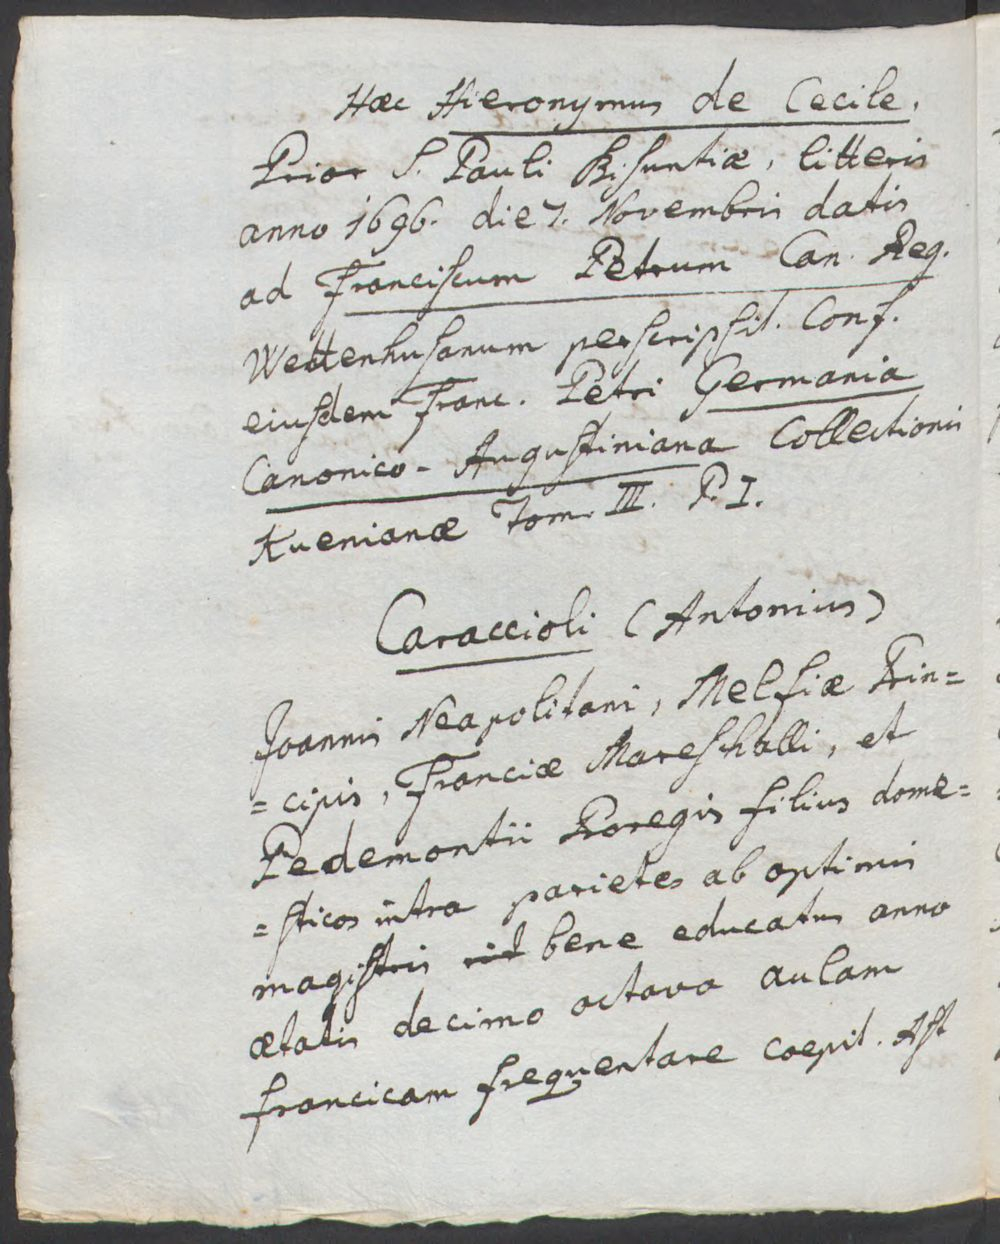 Hæc Hieronymus de Cecile.
Prior S. Pauli Bisuntiæ, litteris
anno 1696. die 7. Novembris datis
ad Franciscum Petrum Can. Reg.
Wettenhusanum perscripsit. Conf.
eiusdem Franc. Petri Germania
Canonico-Augustiniana Collectionis
Kuenianæ Tom. III. P. I.
Caraccioli (Antonius)
Joannis Neapolitani, Melfiæ Prin=
=cipis, Franciæ Mareschalli, et
Pedemontii Proregis filius dome=
=sticos intra parietes ab optimis
magistris bene educatus anno
ætatis decimo octavo aulam
francicam frequentare coepit. Ast